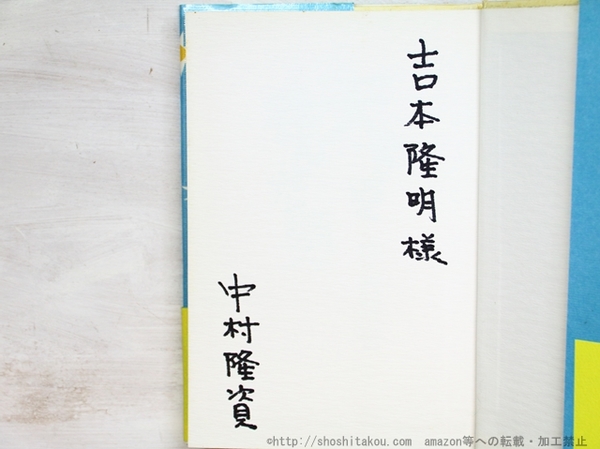 吉本隆明様
中村隆資
©http://shoshitakou.com amazon等への転載・加工禁止